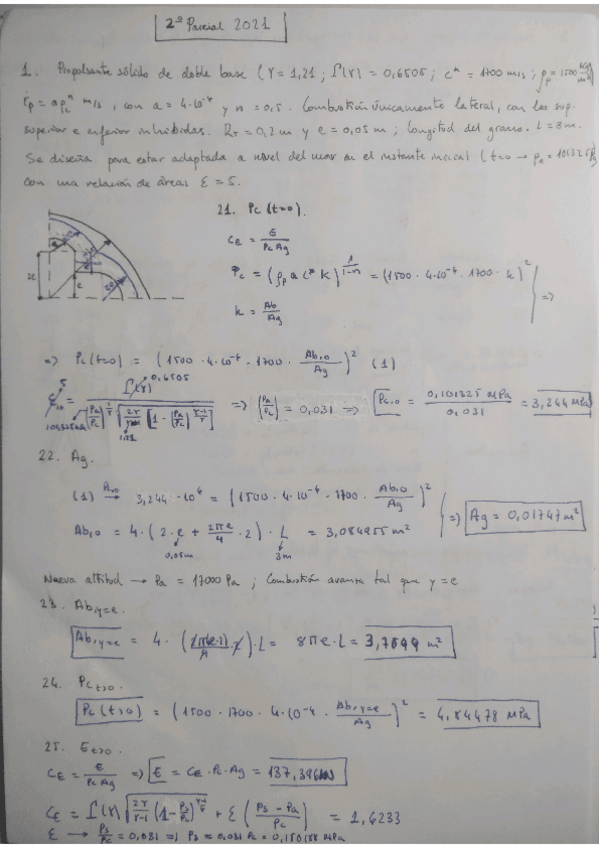 2º Parcial 2021
1. Propulsante sólido de doble base (γ = 1,21 ; Γ(γ) = 0,6505 ; c* = 1700 m/s ; ρp = 1500 kg/m³)
ṙp = a pcⁿ m/s , con a = 4·10⁻⁴ y n = 0,5. Combustión únicamente lateral, con las sup.
superior e inferior inhibidas. RT = 0,2 m y e = 0,05 m ; longitud del grano. L = 3m.
Se diseña para estar adaptada a nivel del mar en el instante inicial (t=0 → pa = 101325 Pa)
con una relación de áreas ε = 5.
21. Pc (t=0).
CE = E / Pc Ag
Pc = (ρp a c* K)^(1/(1-n)) = (1500 · 4·10⁻⁴ · 1700 · K)²
K = Ab / Ag
=>
=> Pc (t=0) = (1500 · 4·10⁻⁴ · 1700 · Ab,0 / Ag)² (1)
=> (Ps/Pc) = 0,031 => Pc,0 = 0,101325 MPa / 0,031 = 3,244 MPa
22. Ag.
(1) → 3,244 · 10⁶ = (1500 · 4·10⁻⁴ · 1700 · Ab,0 / Ag)²
Ab,0 = 4 · (2 · e + 2πe/4 · 2) · L = 3,084955 m²
0,05m 3m
=> Ag = 0,01747 m²
Nueva altitud → Pa = 17000 Pa ; Combustión avanza tal que y = e
23. Ab,y=e.
Ab,y=e = 4 · · L = 8πe · L = 3,7699 m²
24. Pc t>0.
Pc (t>0) = (1500 · 1700 · 4·10⁻⁴ · Ab,y=e / Ag)² = 4,84478 MPa
25. E t>0.
CE = E / Pc Ag => E = CE · Pc · Ag = 137,396 kN
CE = Γ(γ) √(2γ/(γ-1) (1 - (Ps/Pc)^((γ-1)/γ))) + ε ((Ps - Pa)/Pc) = 1,6233
ε → Ps/Pc = 0,031 => Ps = 0,031 Pc = 0,150188 MPa